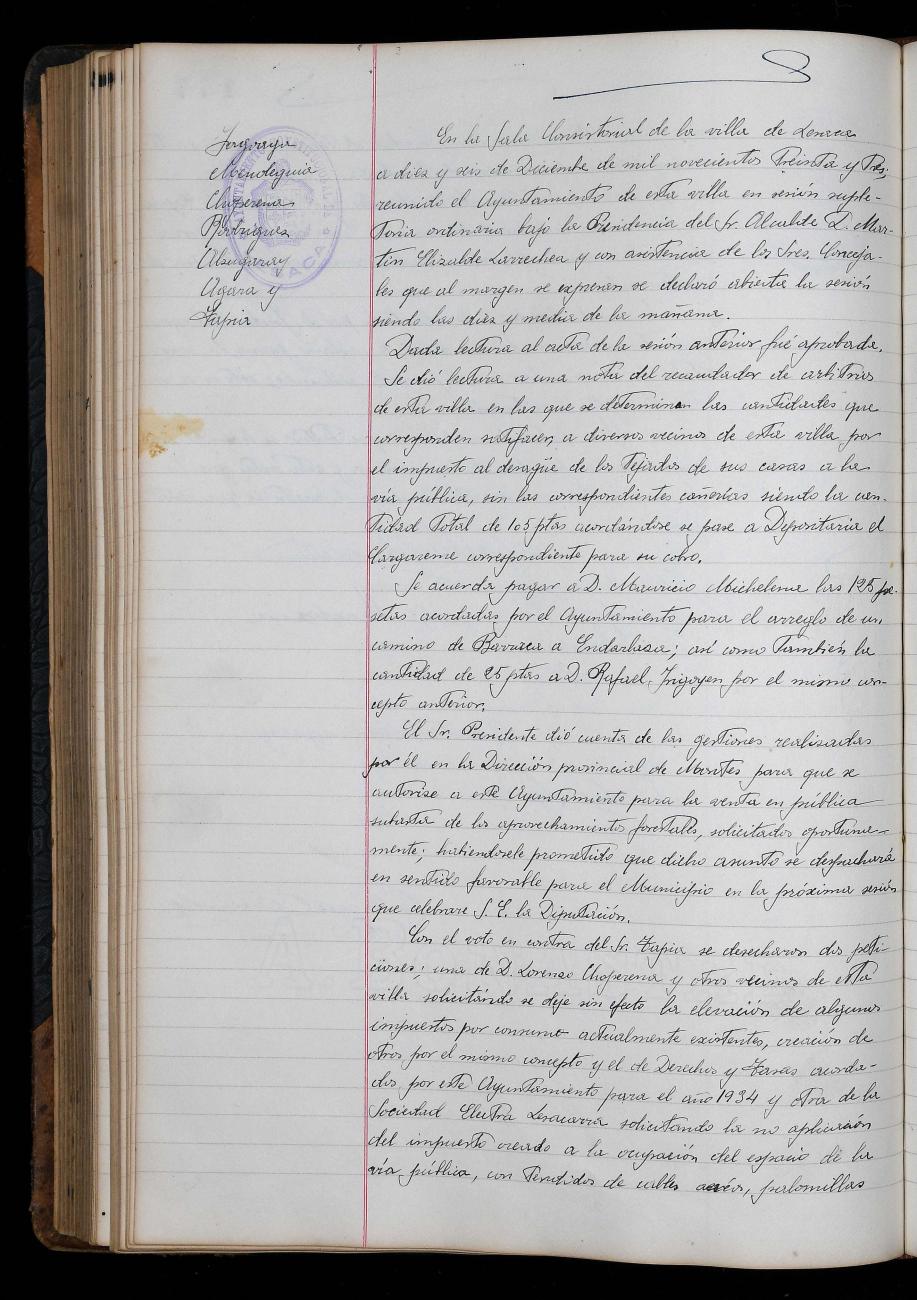 Mendeguia
Choperena
Rodriguez
Alzugaray
Agara y
Tapia
En la Sala Consistorial de la villa de Lesaca
a diez y seis de Diciembre de mil novecientos treinta y tres,
reunido el Ayuntamiento de esta villa en sesión suple-
toria ordinaria bajo la Presidencia del Sr. Alcalde D. Mar-
tin Elizalde Larrechea y con asistencia de los Sres. Conceja-
les que al margen se expresan se declaró abierta la sesión
siendo las diez y media de la mañana.
Dada lectura al acta de la sesión anterior fué aprobada.
Se dió lectura a una nota del recaudador de arbitrios
de esta villa en las que se determinan las cantidades que
corresponden satisfacer, a diversos vecinos de esta villa por
el impuesto al desagüe de los tejados de sus casas a la
vía pública, sin las correspondientes cañerías siendo la can-
tidad total de 105 ptas acordándose se pase a Depositaria el
Cargareme correspondiente para su cobro.
Se acuerda pagar a D. Mauricio Michelena las 125 pe-
setas acordadas por el Ayuntamiento para el arreglo de un
camino de Barraca a Endarlaza; así como también la
cantidad de 25 ptas a D. Rafael Irigoyen por el mismo con-
cepto anterior.
El Sr. Presidente dió cuenta de las gestiones realizadas
por él en la Dirección provincial de Montes para que se
autorize a este Ayuntamiento para la venta en pública
subasta de los aprovechamientos forestales, solicitados oportuna-
mente; habiendosele prometido que dicho asunto se despachará
en sentido favorable para el Municipio en la próxima sesión
que celebrare S. E. la Diputación.
Con el voto en contra del Sr. Tapia se desecharon dos peti-
ciones; una de D. Lorenzo Choperena y otros vecinos de esta
villa solicitándo se deje sin efecto la elevación de algunos
impuestos por consumo actualmente existentes, creación de
otros por el mismo concepto y el de Derechos y Tasas acorda-
dos por este Ayuntamiento para el año 1934 y otra de la
Sociedad Electra Lesacarra solicitando la no aplicación
del impuesto creado a la ocupación del espacio de la
vía pública, con tendidos de cables aéreos, palomillas